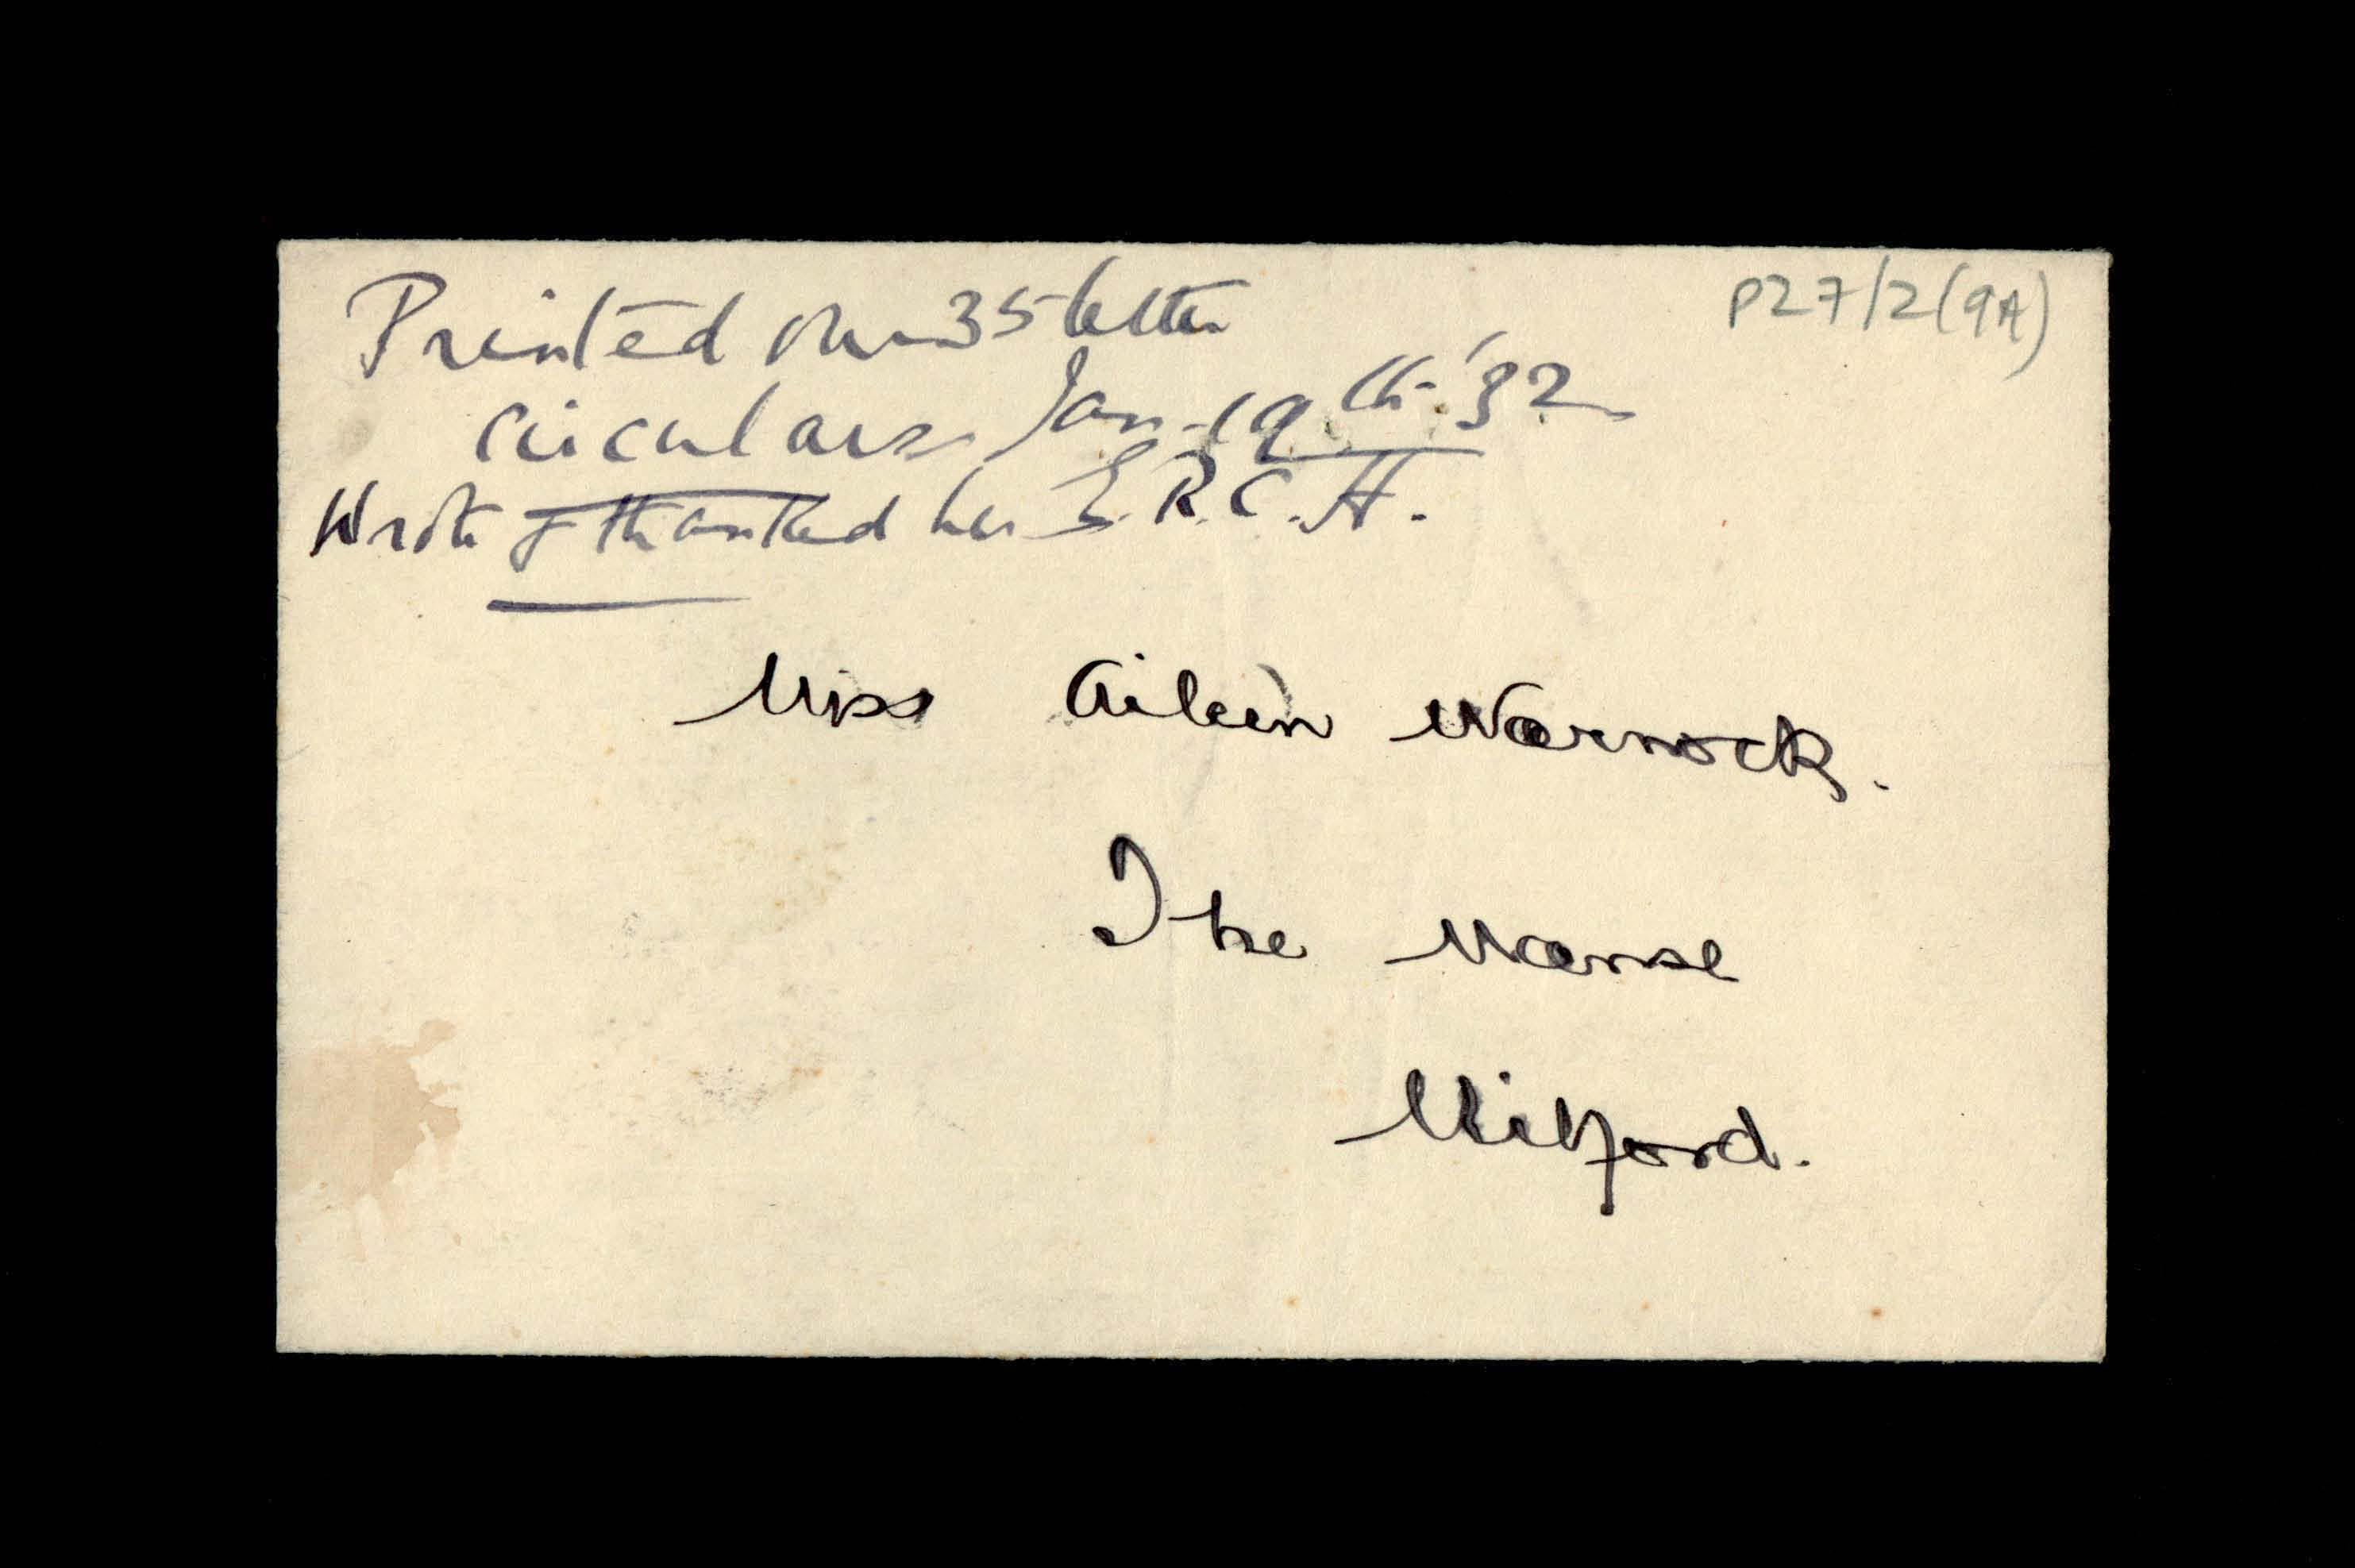 P27/2(9A)
Printed over 35 letter
circulars Jan. 19th. '32
Wrote & thanked her E.R.C.H.
Miss Aileen Warnock.
The Manse
Milford.